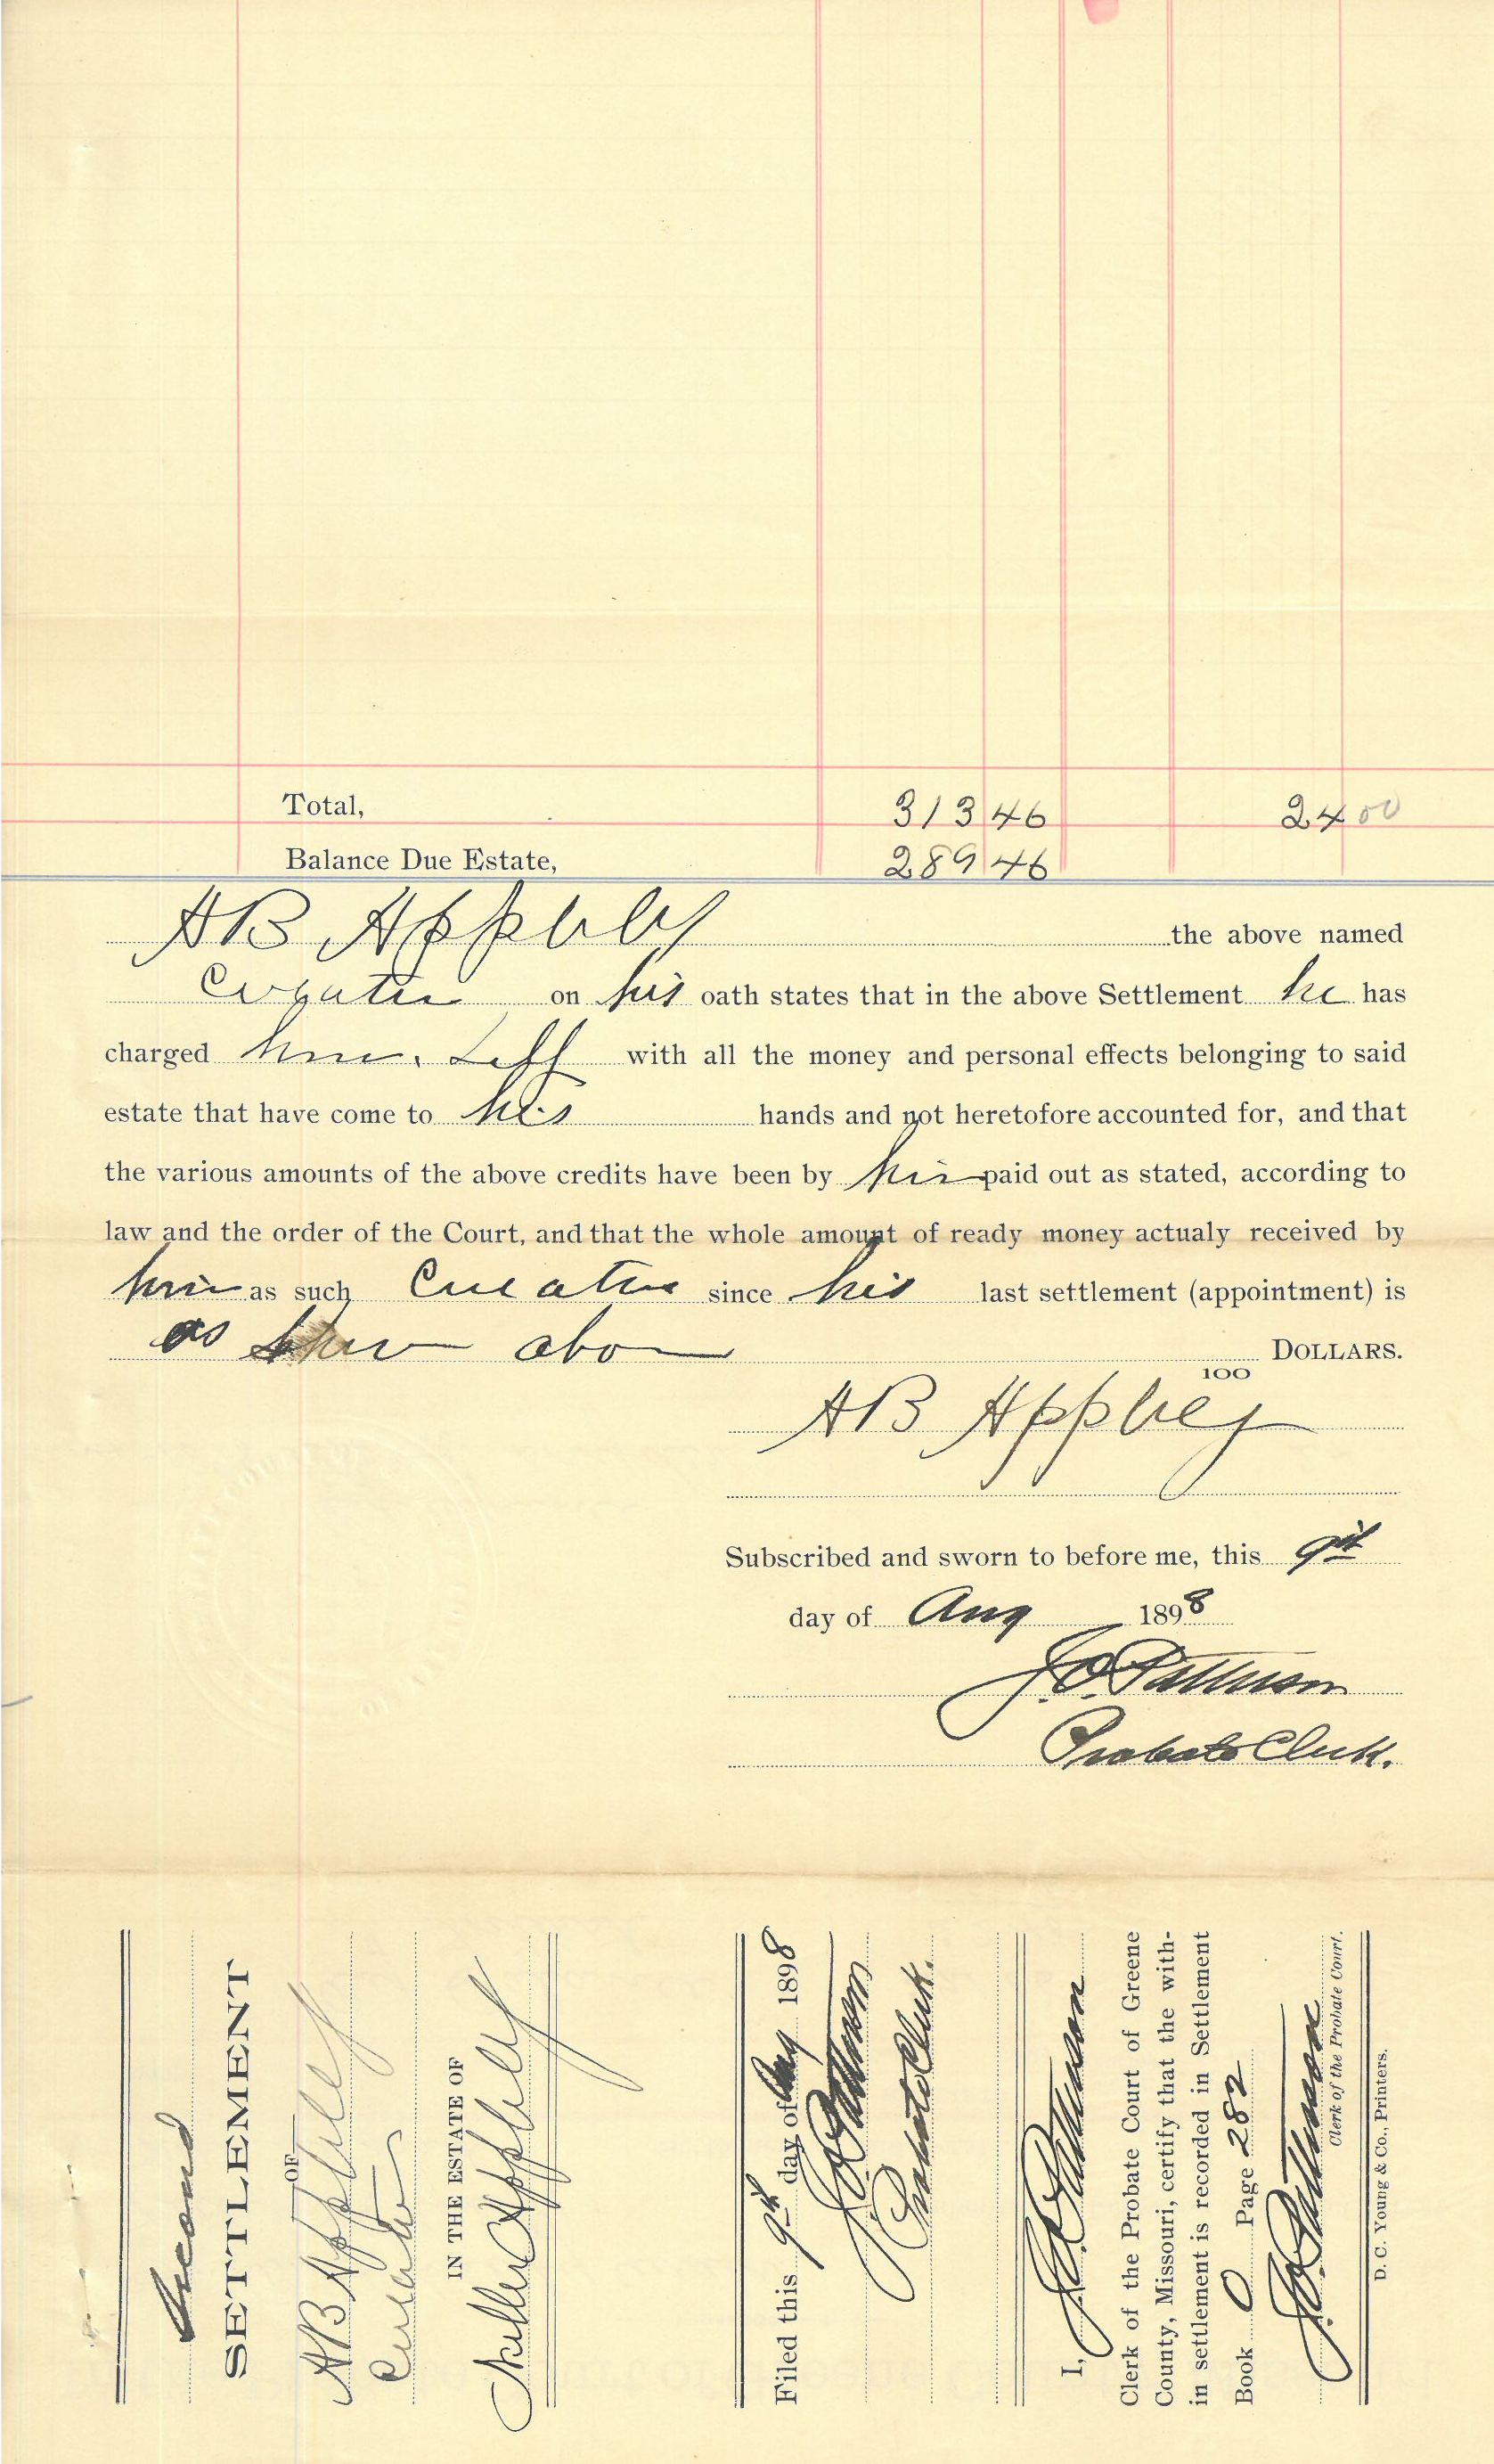 Total, 313 46 24 00
Balance Due Estate, 289 46
A B Appleby the above named
Curator on his oath states that in the above Settlement he has
charged him self with all the money and personal effects belonging to said
estate that have come to his hands and not heretofore accounted for, and that
the various amounts of the above credits have been by him paid out as stated, according to
law and the order of the Court, and that the whole amount of ready money actualy received by
him as such Curator since his last settlement (appointment) is
as DOLLARS.
100
A B Appleby
Subscribed and sworn to before me, this 9th
day of Aug 1898
J.O. Patterson
Probate Clerk.
Second
SETTLEMENT
OF
A B Appleby
Curator
IN THE ESTATE OF
Appleby
Filed this 9th day of Aug 1898
J.O. Patterson
Probate Clerk.
I, J.O. Patterson
Clerk of the Probate Court of Greene
County, Missouri, certify that the with-
in settlement is recorded in Settlement
Book O Page 282
J.O. Patterson
Clerk of the Probate Court.
D. C. Young & Co., Printers.